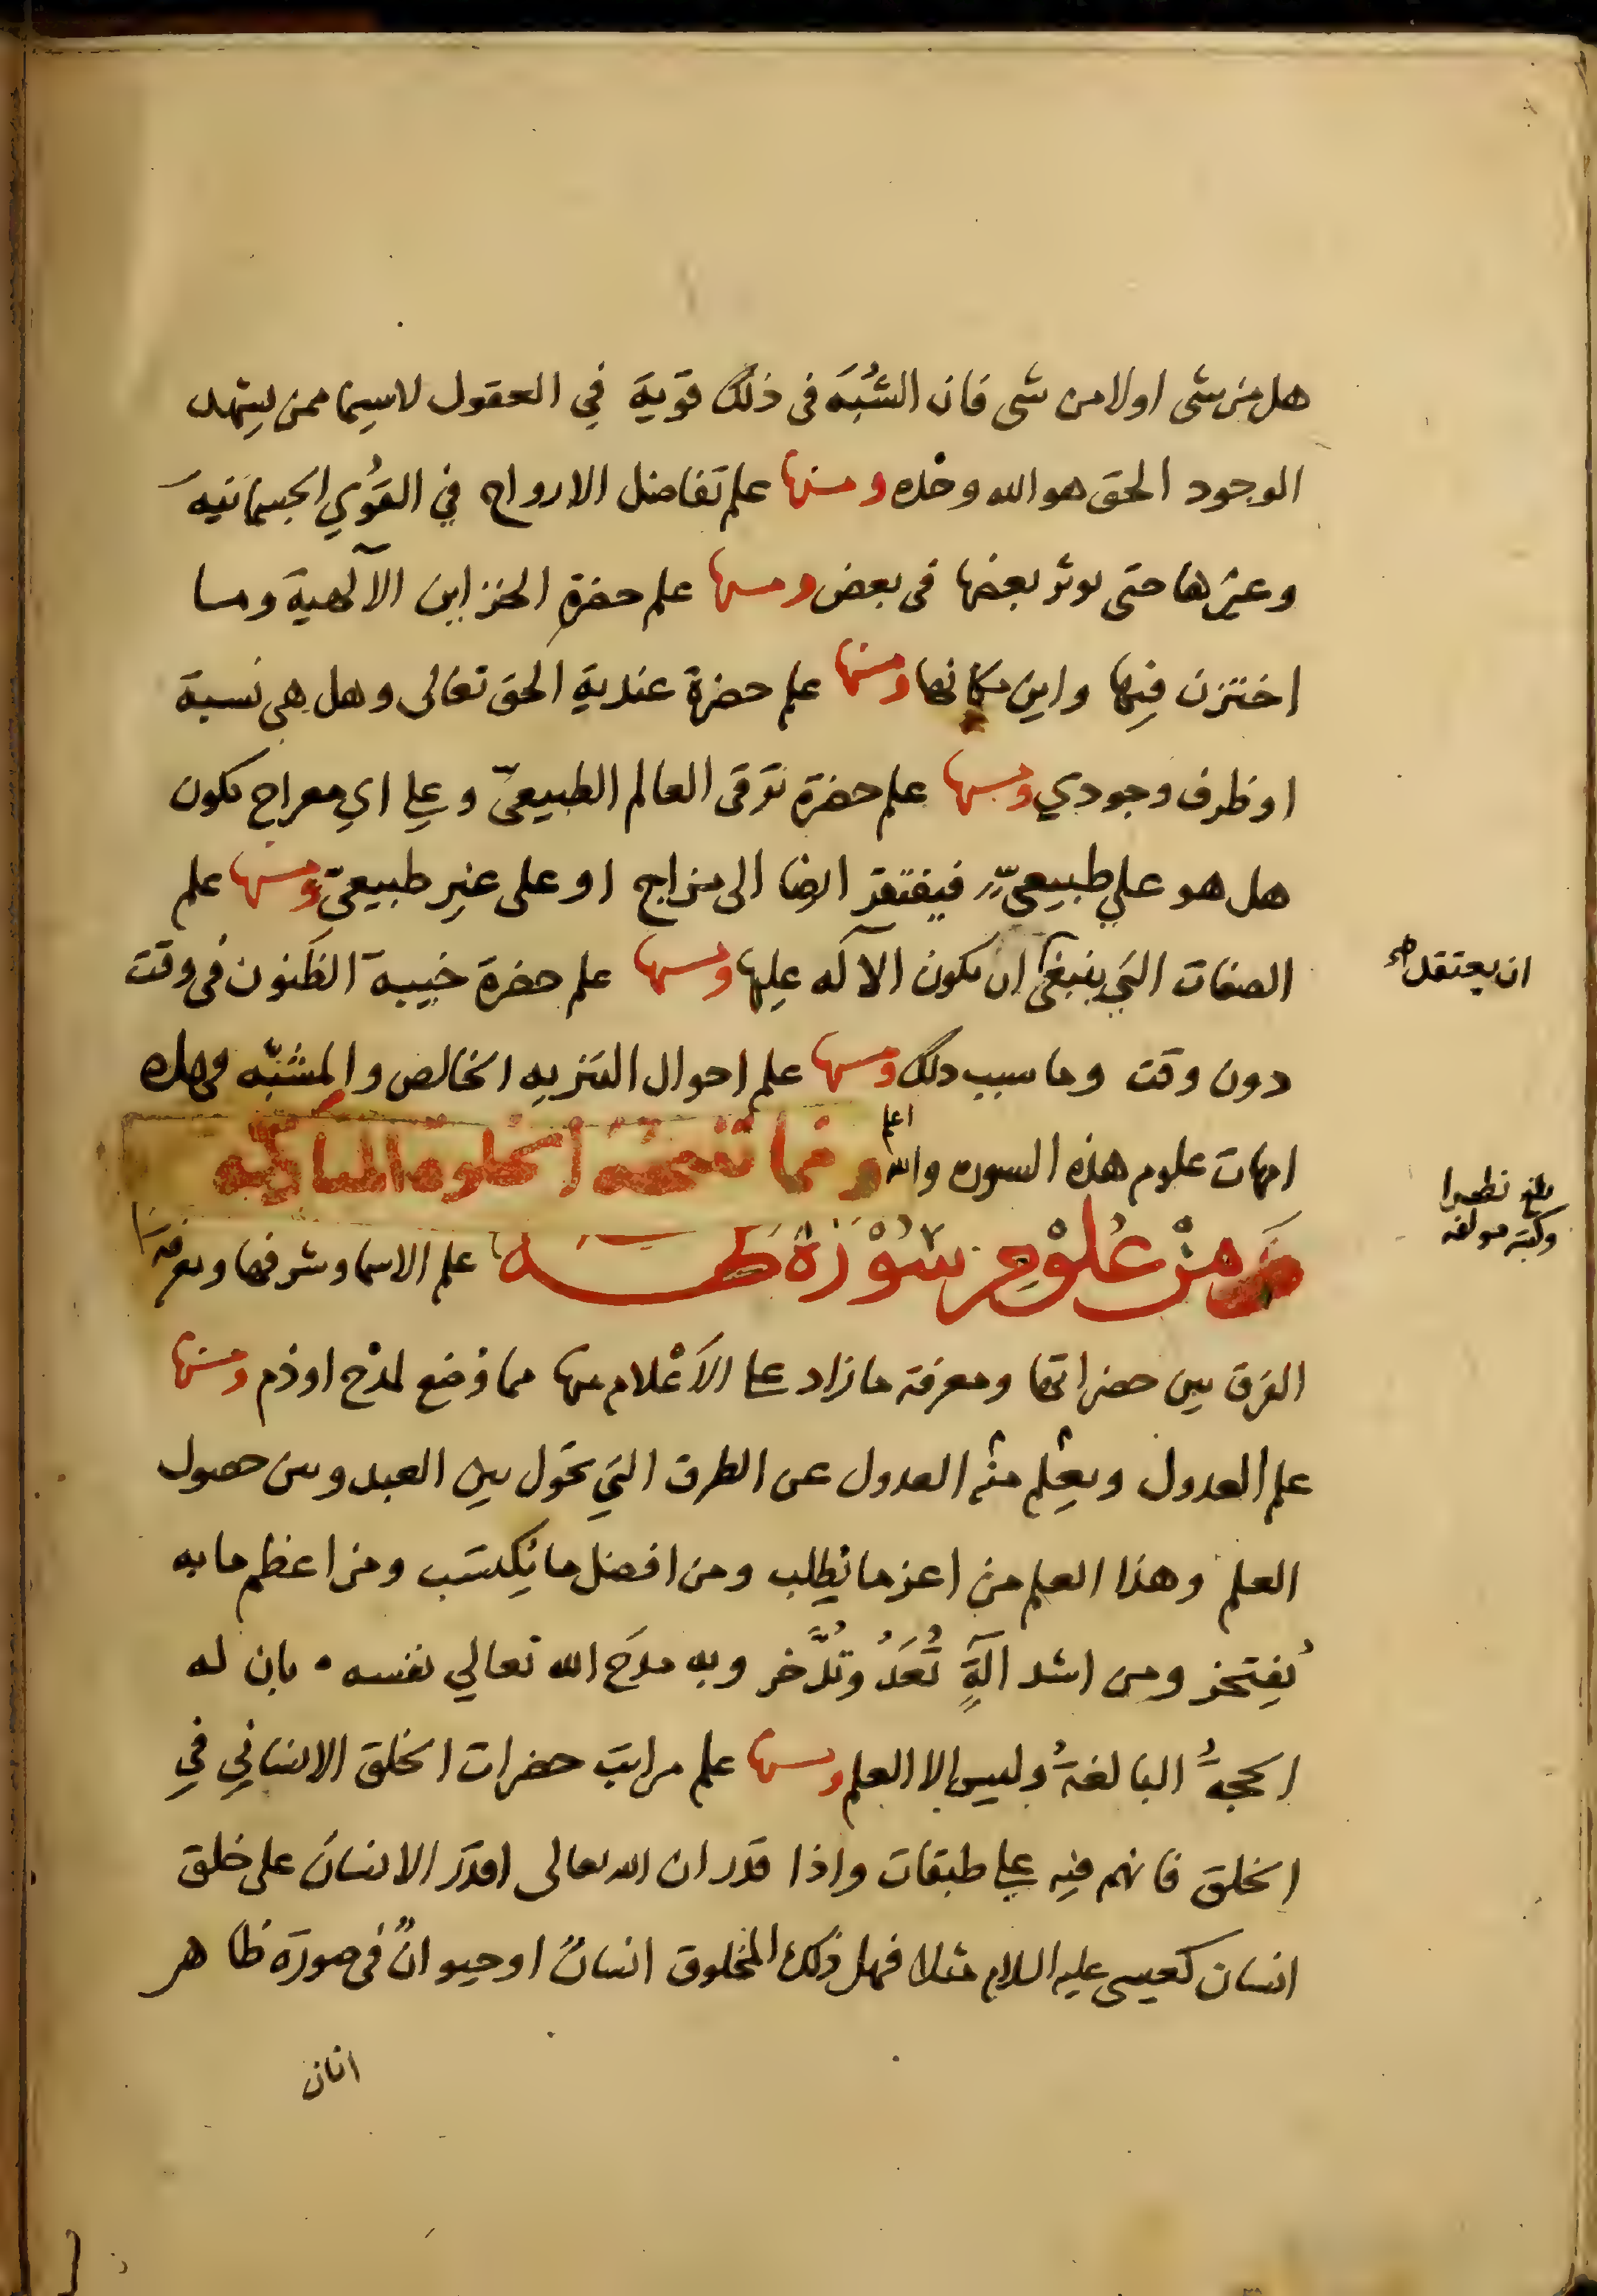 هل من شى اولا من شى فان الشُبَه فى ذلك قوية في العقول لاسيما ممن يشهد
الوجود الحق هو الله وحده ومنها علم تفاضل الارواح في القوي الجسمانية
وغيرها حتى يوثر بعضها فى بعض ومنها علم حضرة الخزاين الآلهية وما
اختزن فيها واين مكانها ومنها علم حضرة عندية الحق تعالى وهل هى نسبة
او ظرف وجودي ومنها علم حضرة ترقى العالم الطبيعىّ وعلى اي معراج يكون
هل هو على طبيعىّ فيفتقر ايضا الى مزاج او على غير طبيعىّ ومنها علم
الصفات التي ينبغى ان يكون الآله عليها ومنها علم حضرة خيبة الظنون فى وقت
ان يعتقد صح
دون وقت وما سبب ذلك ومنها علم احوال التنزيه الخالص والمشبّه فهذه
امهات علوم هذه السوره والله اعلم ومما تفحته الخلوة المباركه
بلغ نظرا
وكتبه مولفه
ومِنْ عُلُوْمِ سُوْرَةِ طه علم الاسما وشرفها ومعرفة
الفرق بين حضراتها ومعرفة ما زاد على الأعْلام منها مما وُضع لمدْح او ذم ومنها
علم العدول ويعلم منه العدول عن الطرق التي تحول بين العبد وبين حصول
العلم وهذا العلم من اعز ما يُطلب ومن افضل ما يُكتسَب ومن اعظم ما به
يُفتخر ومن اشد آلةٍ تُعَدُّ وتُدَّخر وبه مدَح الله تعالي نفسه . بان له
الحجةُ البالغةُ وليس الا العلم ومنها علم مراتب حضرات الخلق الانسانِي في
الخلق فانهم فيه على طبقات واذا قدر ان الله تعالى اقدر الانسان على خلق
انسان كعيسى عليه السلام مثلا فهل ذلك المخلوق انسانٌ او حيوانٌ فى صورة ظاهر
انان